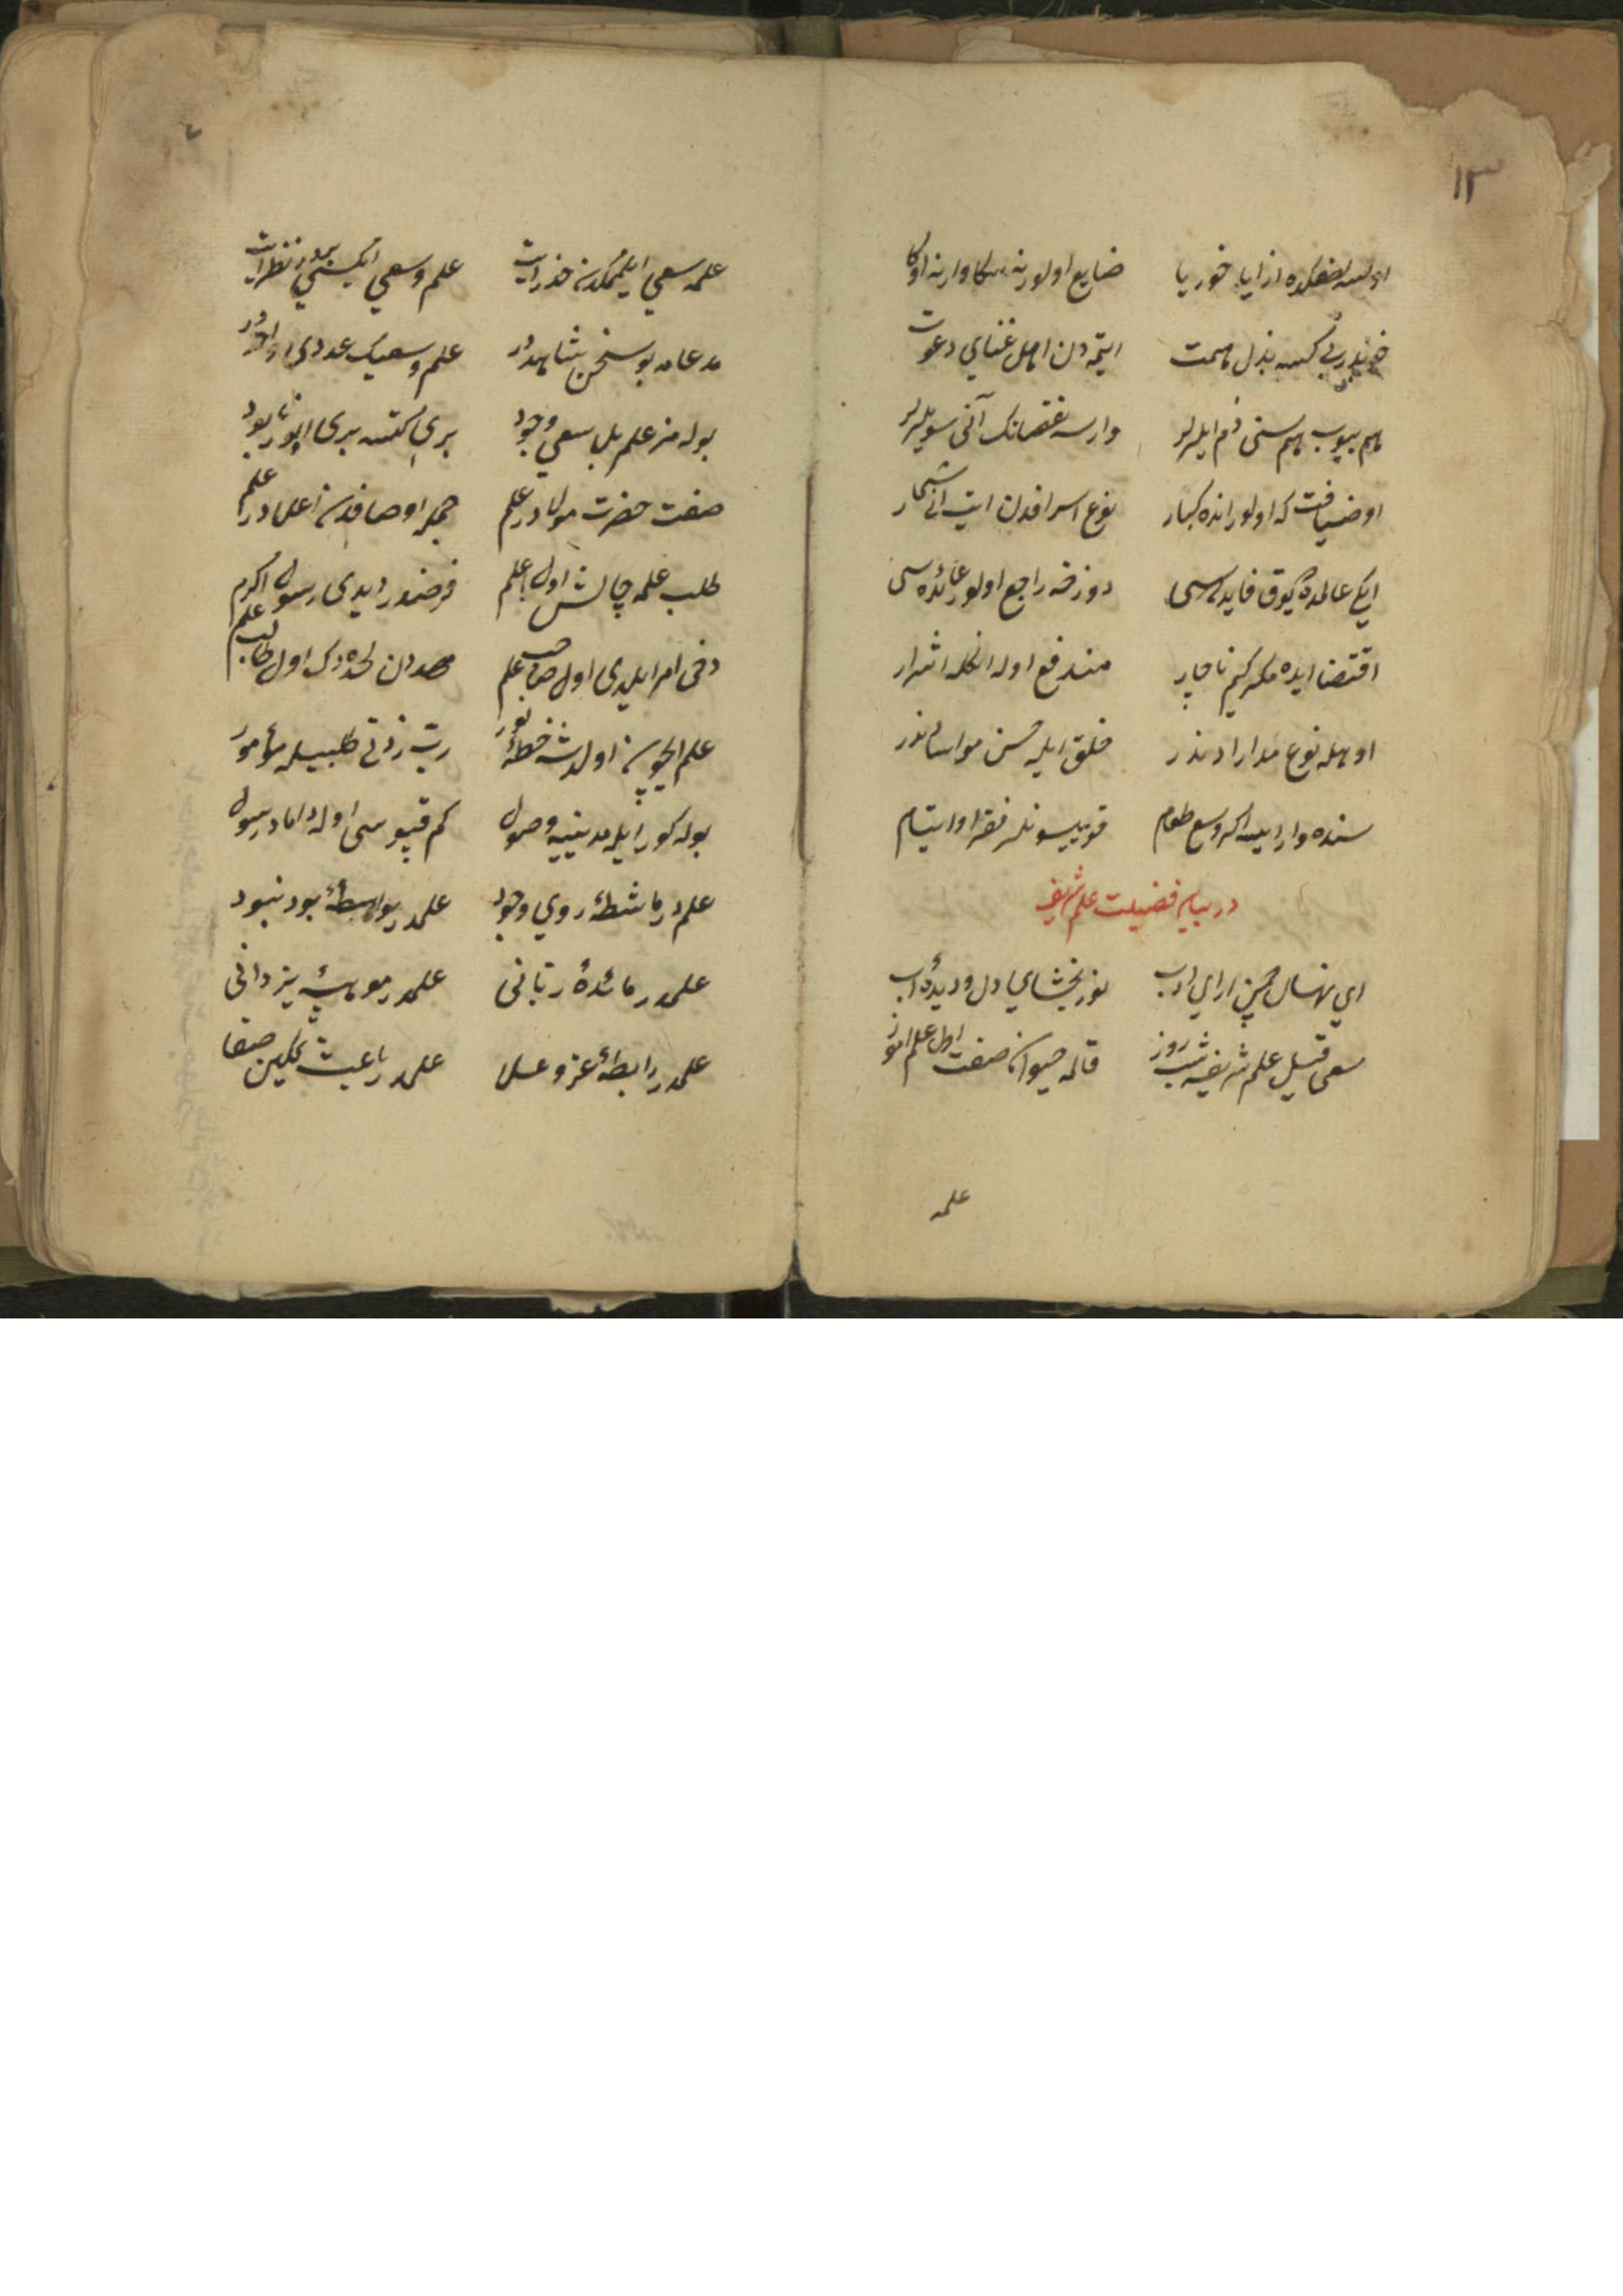 ١٣
اولسه لطفكده از ايا خور يا ضايع اولور نه سكا وار نه اوكا
بذل همت ايتمه دن اهل غنايى دعوت
هم ييوب هم سنى ذم ايلرلر وارسه نقصانك آنى سويلرلر
او ضيافت كه اولور انده كبار نوع اسرافدن ايت انى شمار
ايكى عالمده يوق فايده سى دوزخه راجع اولور عائده سى
اقتضا ايده مكر كيم ناچار مندفع اوله انكله اشرار
او هله نوع مدارادندر خلق ايله حسن مواساتدندر
سنده وار ايسه اكر وسع طعام قو ييسونلر فقرا و ايتام
در بيان فضيلت علم شريف
اى نهال چمن اراى ادب نور بخشاى دل و ديدهٔ اب
سعى قيل علم شريفه شب و روز قالمه حيوان صفت اول علم اموز
علمه
علمه سعى ايلمكدن حذر ايت علم و سعى ايكيسى بردر نظر ايت
مدعامه بو سخن شاهددر علم و سعيك عددى واحددر
بوله مز علم بلا سعى وجود برى كتسه برى اولور نابود
صفت حضرت مولادر علم جمله اوصافدن اعلادر علم
طلب علمه چالش اول اعلم فرضدر ديدى رسول اكرم
دخى امر ايلدى اول صاحب علم مهددن لحده دك اول طالب علم
علم ايچون اولدى شه خطهٔ نور رب زدنى طلبيله مأمور
بوله كور ايله مدينيه وصول كم قپوسى اوله داماد رسول
علمدر ماشطهٔ روى وجود علمدر واسطهٔ بود نبود
علمدر مائدهٔ ربانى علمدر موهبهٔ يزدانى
علمدر رابطهٔ عز و علا علمدر باعث تمكين صفا